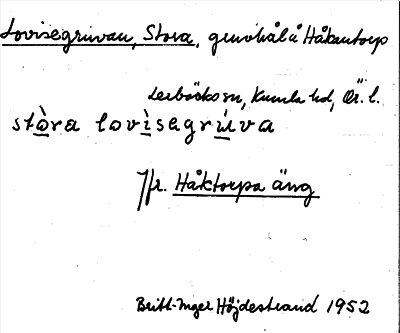 Lovisegruvan, Stora, gruvhål å Håkantorp
Lerbäcks sn, Kumla hd, Ör. l.
stòra lovìsagrúva
Jfr. Håktorpa äng
Britt-Inger Höjdestrand 1952